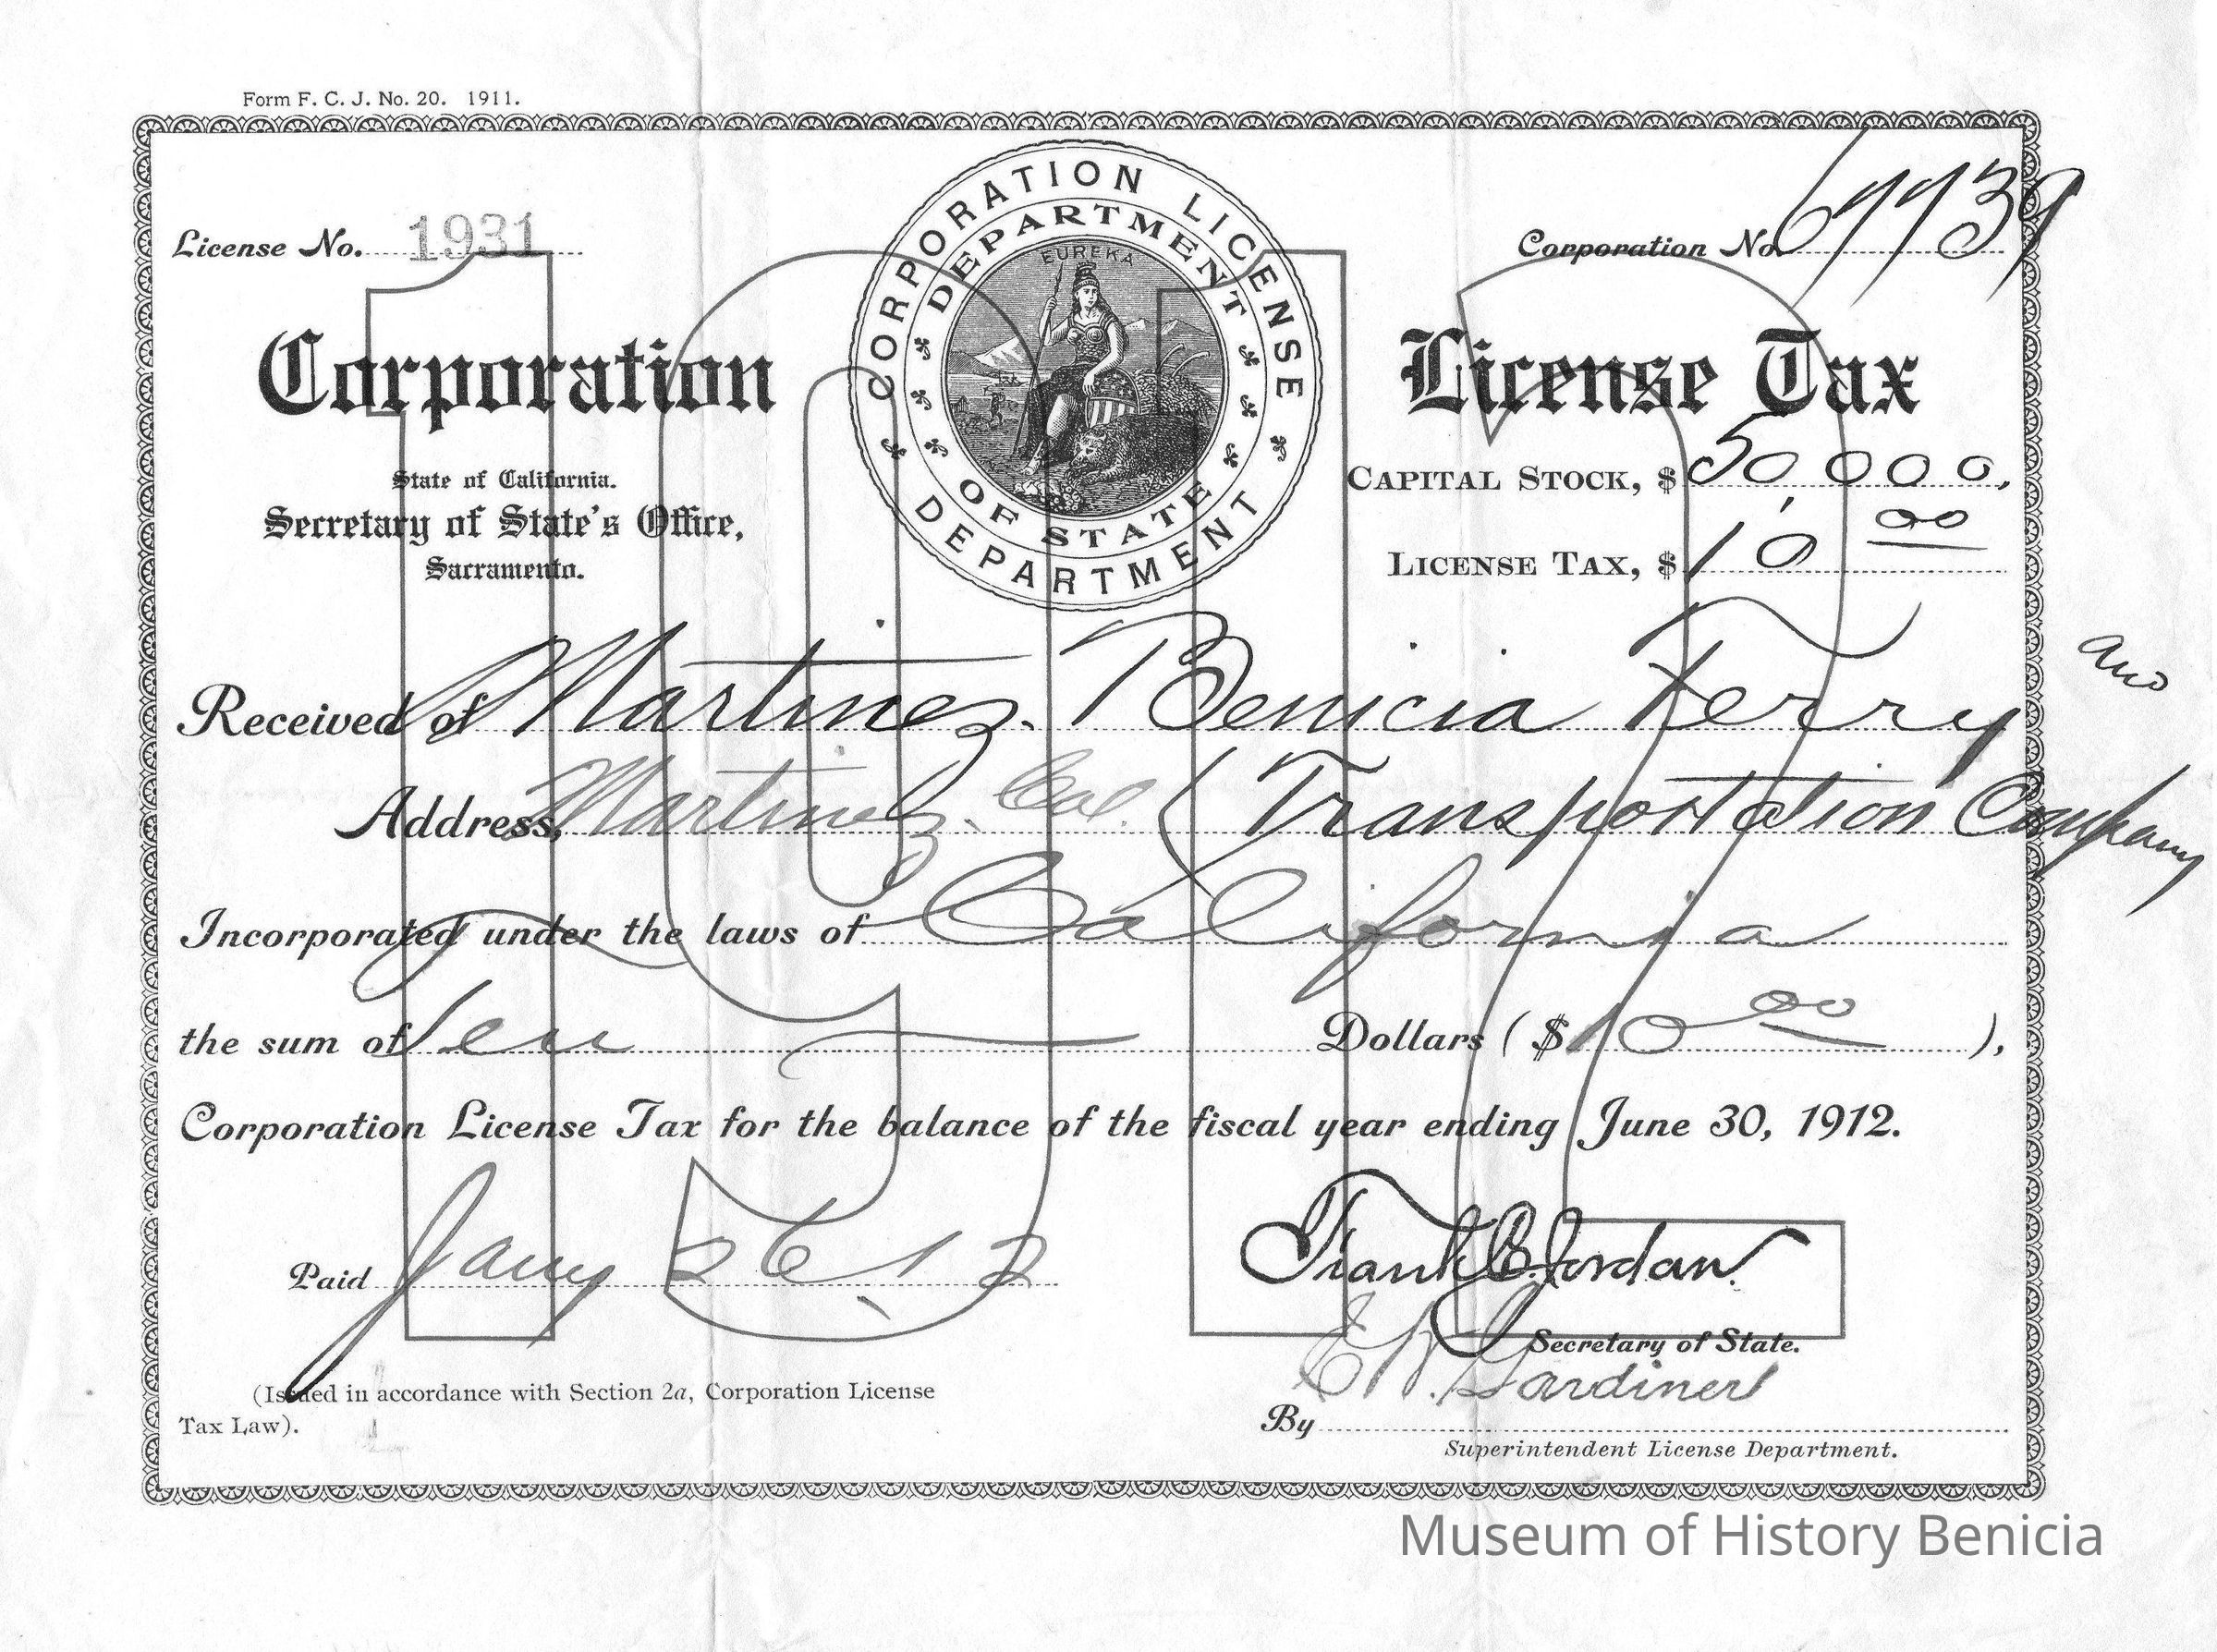 Form F. C. J. No. 20. 1911.
CORPORATION LICENSE DEPARTMENT
DEPARTMENT OF STATE
EUREKA
License No. 1931
Corporation No. 67739
1912
Corporation License Tax
State of California.
Secretary of State's Office,
Sacramento.
CAPITAL STOCK, $ 50,000.
LICENSE TAX, $ 10 00
Received of Martinez. Benicia Ferry and
Address, Martinez. Cal. (Transportation Company
Incorporated under the laws of California
the sum of Ten Dollars ($ 10 00 ),
Corporation License Tax for the balance of the fiscal year ending June 30, 1912.
Paid Jany 26, 12
Frank C. Jordan.
Secretary of State.
(Issued in accordance with Section 2a, Corporation License
Tax Law).
By Gardiner
Superintendent License Department.
Museum of History Benicia